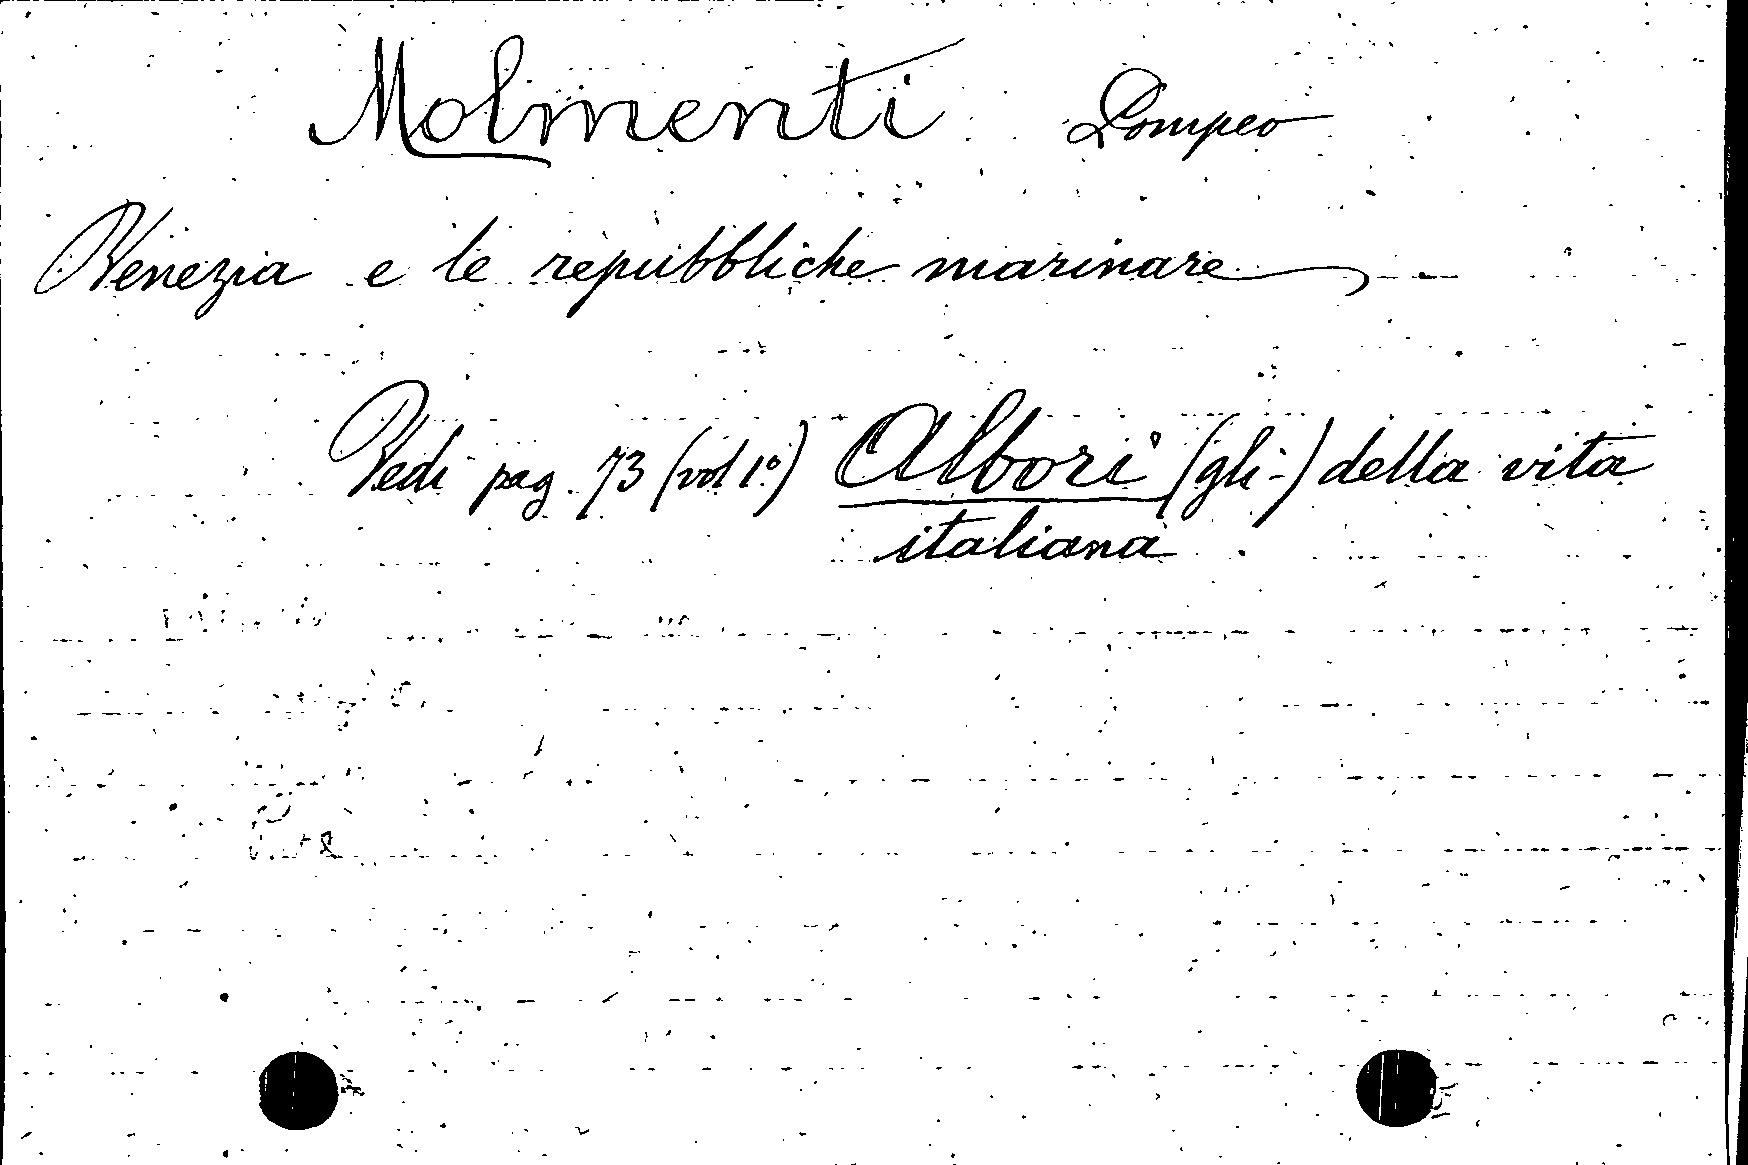 Molmenti Pompeo
Venezia e le repubbliche marinare
Vedi pag. 73 (vol 1º) Albori (gli-) della vita
italiana